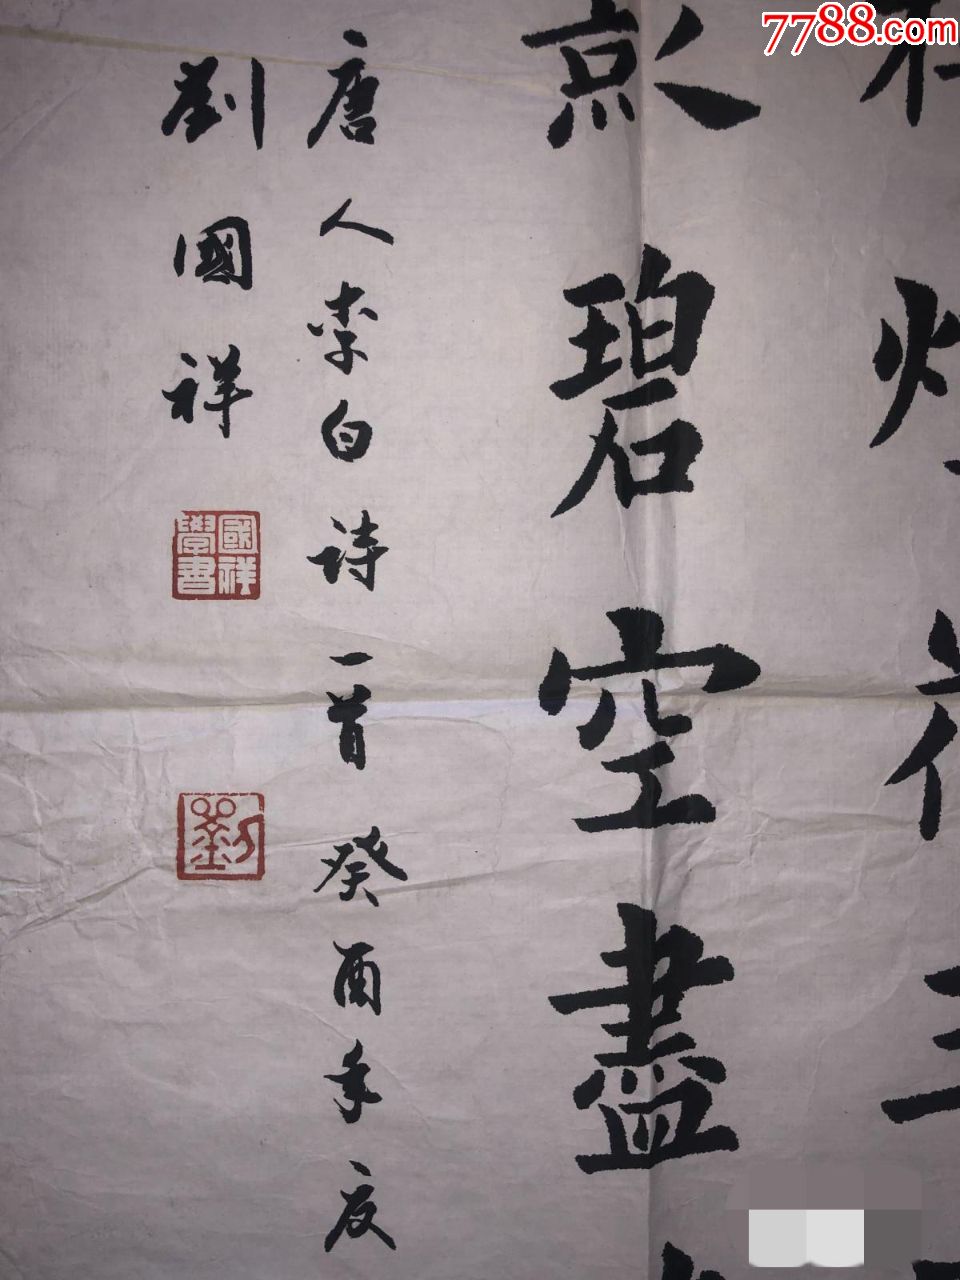 7788.com
影碧空盡
唐人李白诗一首癸酉年夏
劉國祥
國祥
學書
劉